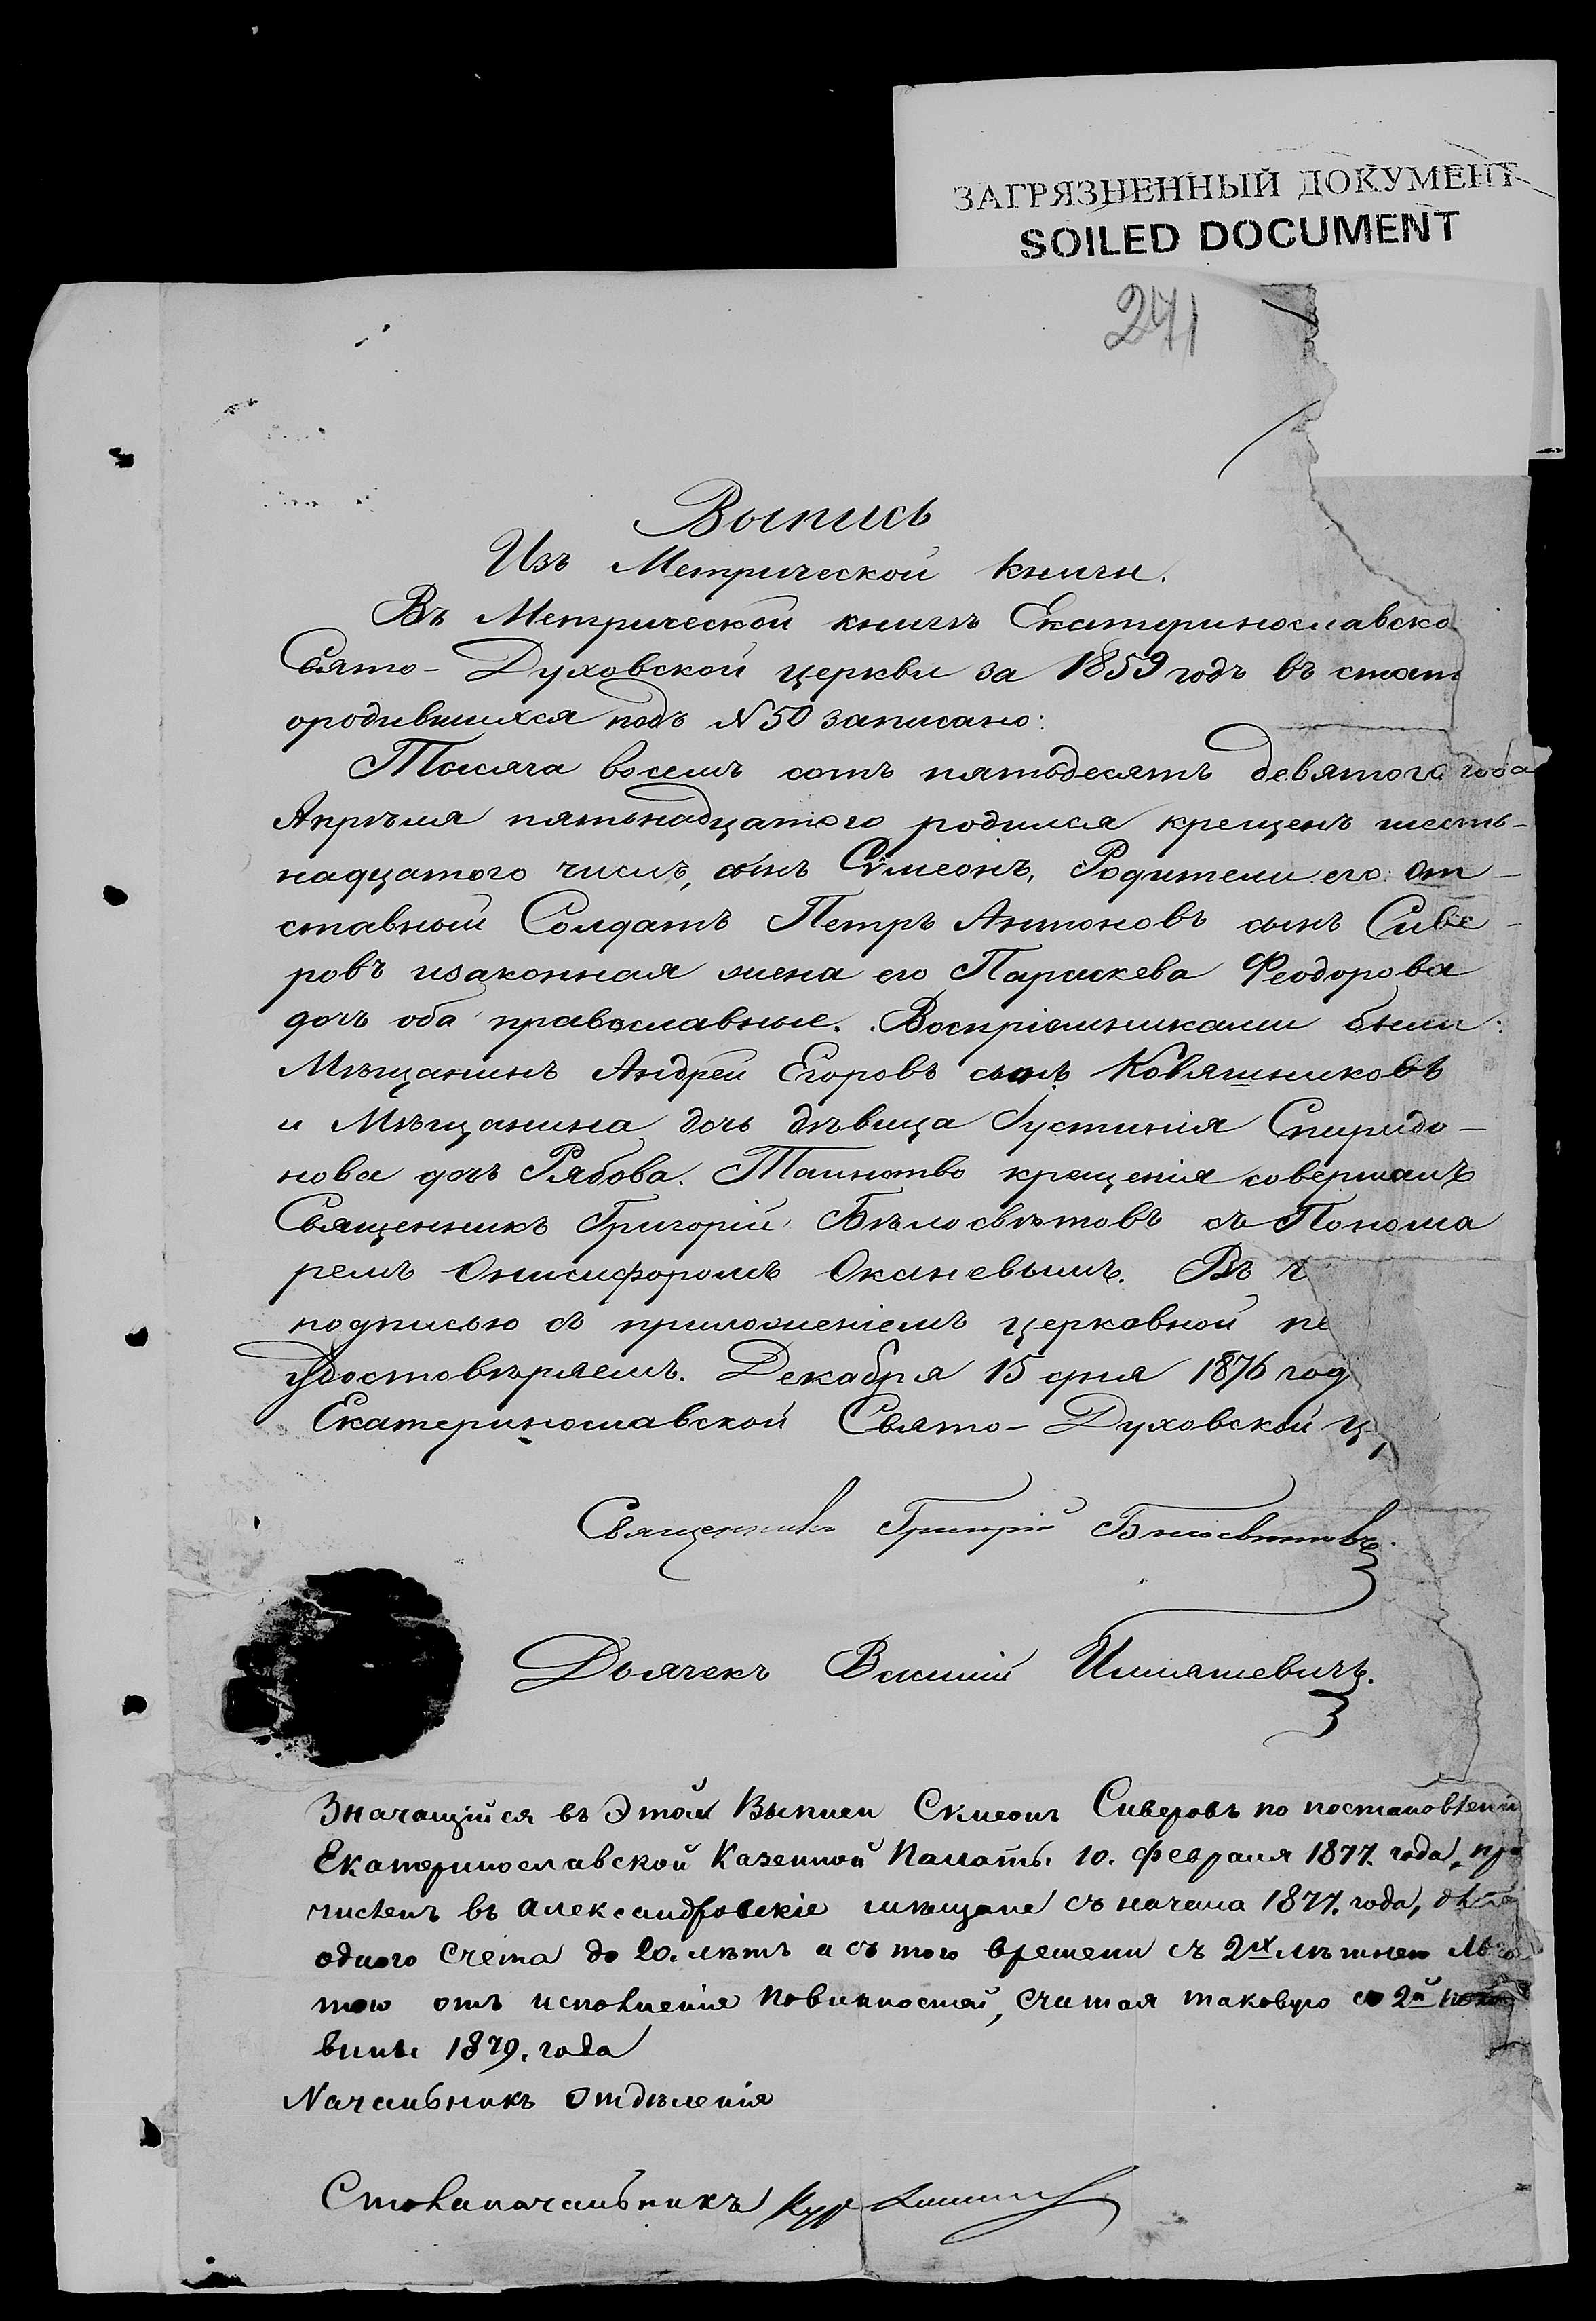 ЗАГРЯЗНЕННЫЙ ДОКУМЕНТ
SOILED DOCUMENT
241
Выпись
Изъ Метрической Книги.
Въ Метрической книгѣ Екатеринославско
Свято-Духовской церкви за 1859 годъ въ стат
ородившихся подъ №50 записано:
Тысяча восемь сотъ пятьдесятъ девятого года
Апрѣля пятьнадцатого родился крещенъ шесть-
надцатого числъ, сынъ Сѵмеонъ, Родители его: От-
ставный Солдатъ Петръ Антоновъ сынъ Сиве-
ровъ изаконная жена его Параскева Феодорова
дочъ оба православные. Воспріемниками были:
Мѣщанинъ Андрей Егоровъ сынъ Ковяшниковъ
и Мѣщанина дочь дѣвица Іустинія Спиридо-
нова дочъ Рябова. Таинство крещенія совершалъ
Священникъ Григорій Бѣлосвѣтовъ съ Понома
ремъ Онисифоромъ Оканевымъ. Въ ч
подписью съ приложеніемъ церковной пе
Удостовѣряемъ. Декабря 15 дня 1876 год
Екатеринославской Свято-Духовской Ц
Священникъ Григорій Бѣлосвѣтовъ.
Дьячекъ Василий Игнашевичъ.
Значащійся въ этой Выписи Симеонъ Сиверовъ по постановленію
Екатеринославской Казенной Палаты 10. Февраля 1877. года, при
численъ въ Александровскіе мѣщане съ начала 1877. года, для
одного счета до 20. лѣтъ а съ того времени съ 2хъ лѣтнею льго
тою отъ исполненія повинностей, считая таковую со 2й поло
вины 1879. года
Начальникъ Отдѣленія
Столоначальникъ